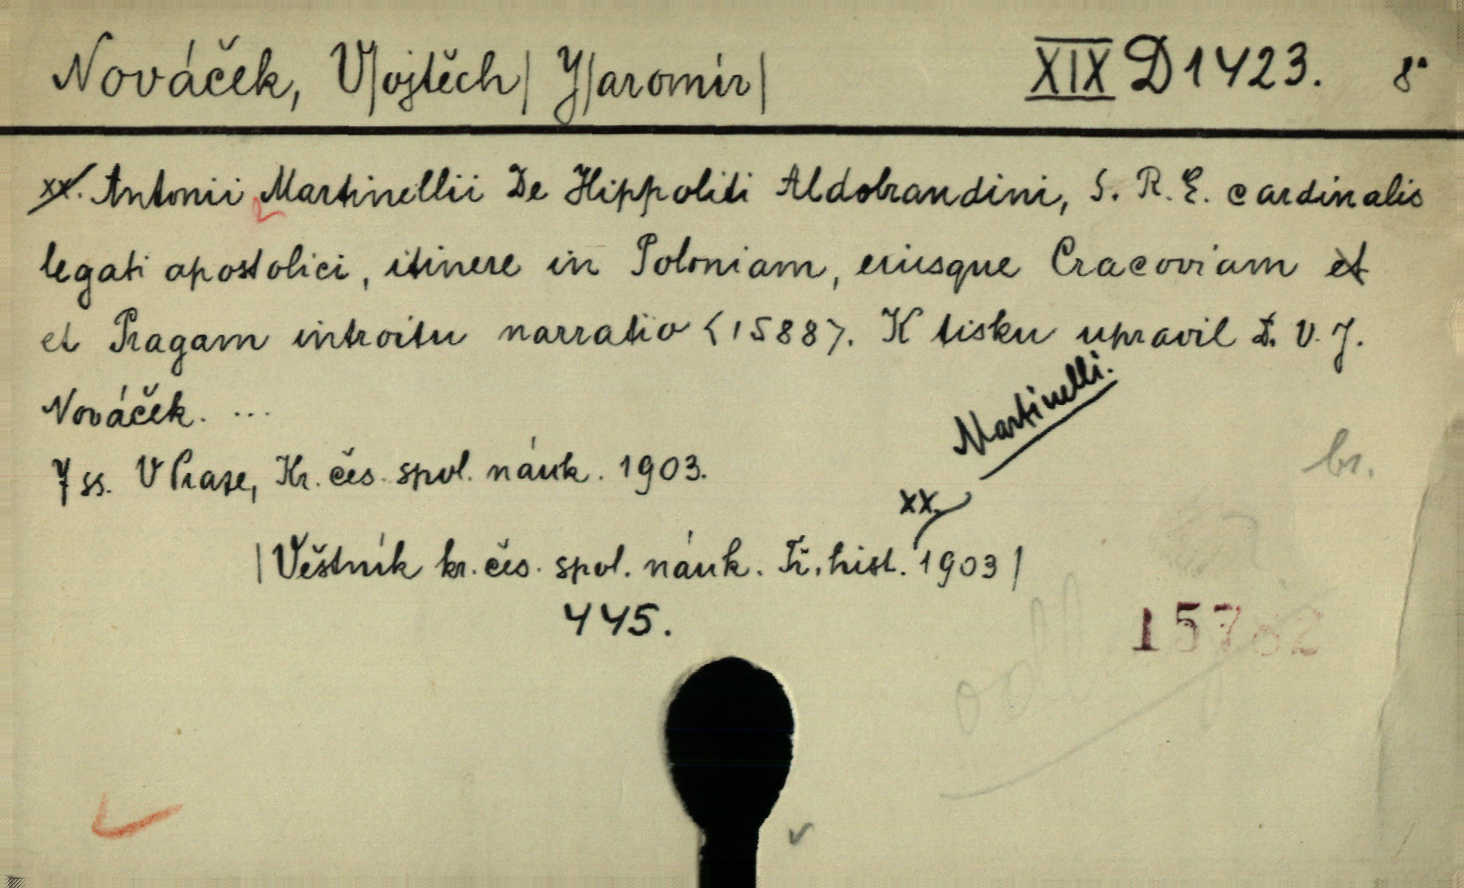 Nováček, V|ojtěch| J|aromír| XIX D 1423. 8°
xx. Antonii Martinellii De Hippoliti Aldobrandini, S. R. E. cardinalis
legati apostolici, itinere in Poloniam, eiusque Cracoviam et
et Pragam introitu narratio <1588>. K tisku upravil D. V. J.
Nováček. ...
Martinelli.
br.
7 ss. V Praze, Kr. čes. spol. náuk. 1903.
xx.
|Věstník kr. čes. spol. náuk. Tř. hist. 1903|
445.
15782